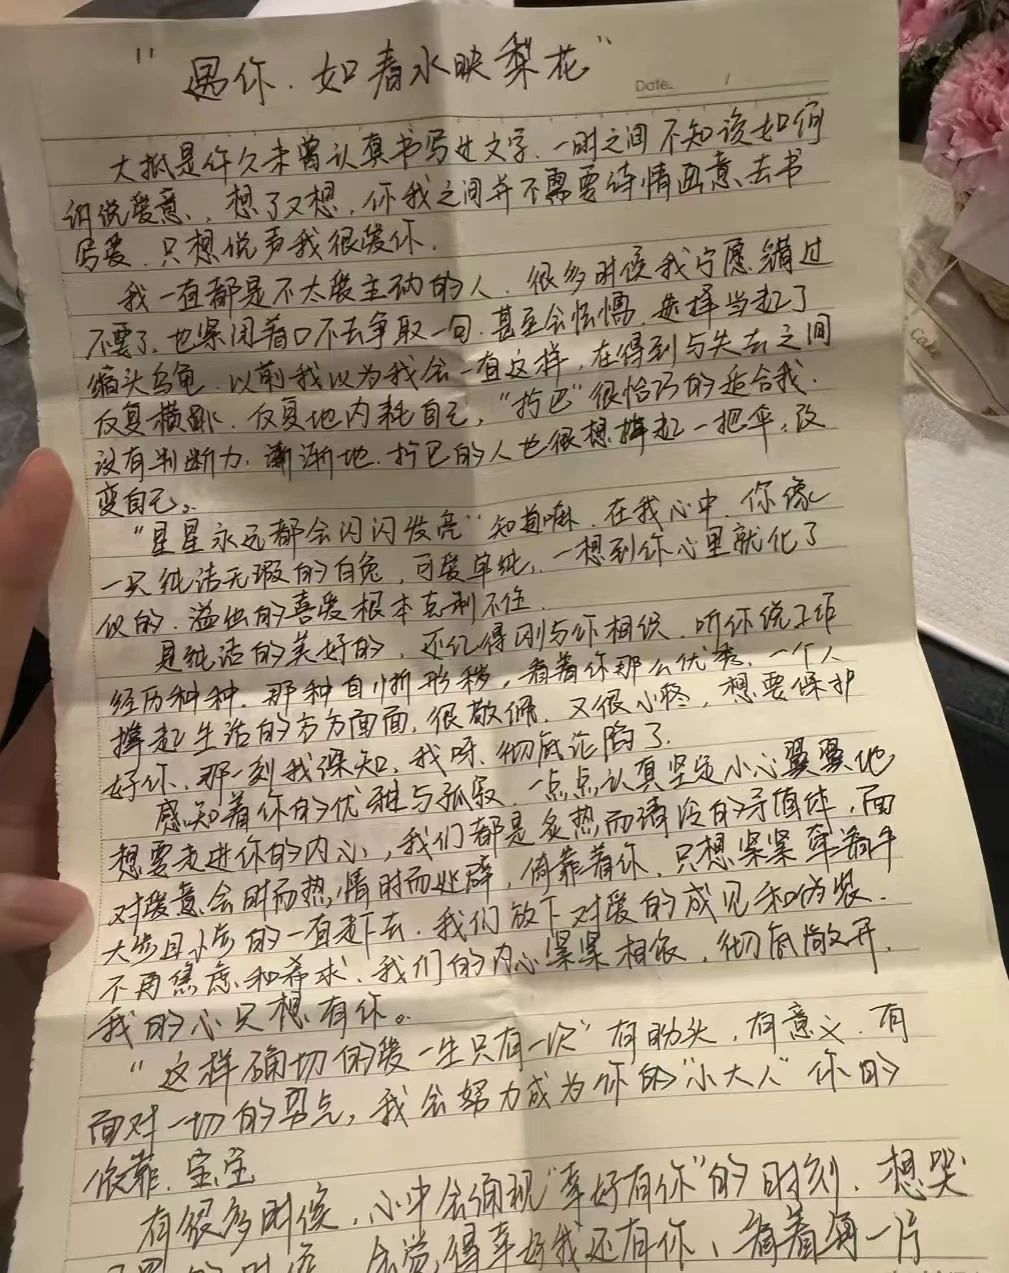 “遇你.如春水映梨花”
Date. /
大抵是许久未曾认真书写过文字.一时之间不知该如何
诉说爱意.,想了又想,你我之间并不需要诗情画意去书
写爱.只想说声我很爱你.
我一直都是不太爱主动的人.很多时候我宁愿错过
不要了.也紧闭着口不去争取一句.甚至会怯懦.选择当起了
缩头乌龟.以前我以为我会一直这样,在得到与失去之间
反复横跳.反复地内耗自己,“拧巴”很恰巧的适合我.
没有判断力.渐渐地.拧巴的人也很想撑起一把伞.改
变自己。
“星星永远都会闪闪发亮”知道嘛.在我心中.你像
一只纯洁无瑕的白兔,可爱单纯,.一想到你心里就化了
似的.溢出的喜爱根本克制不住.
是纯洁的美好的,还记得刚与你相识.听你说工作
经历种种.那种自惭形秽,看着你那么优秀.一个人
撑起生活的方方面面.很敬佩.又很心疼,想要保护
好你.那一刻我深知.我呀.彻底沦陷了.
感知着你的优雅与孤寂.一点点认真坚定小心翼翼地
想要走进你的内心,我们都是炙热而清冷的矛盾体,面
对爱意会时而热情时而孤僻,倚靠着你.只想紧紧牵着手
大步且小步的一直走下去.我们放下对爱的成见和伪装.
不再焦虑和希求.我们的内心紧紧相依,彻底敞开.
我的心只想有你。
“这样确切的爱一生只有一次”有盼头,有意义.有
面对一切的勇气,我会努力成为你的“小大人”你的
依靠.宝宝
有很多时候,心中会涌现“幸好有你”的时刻.想哭
的时候 会觉得幸好我还有你、看着每一片
Case